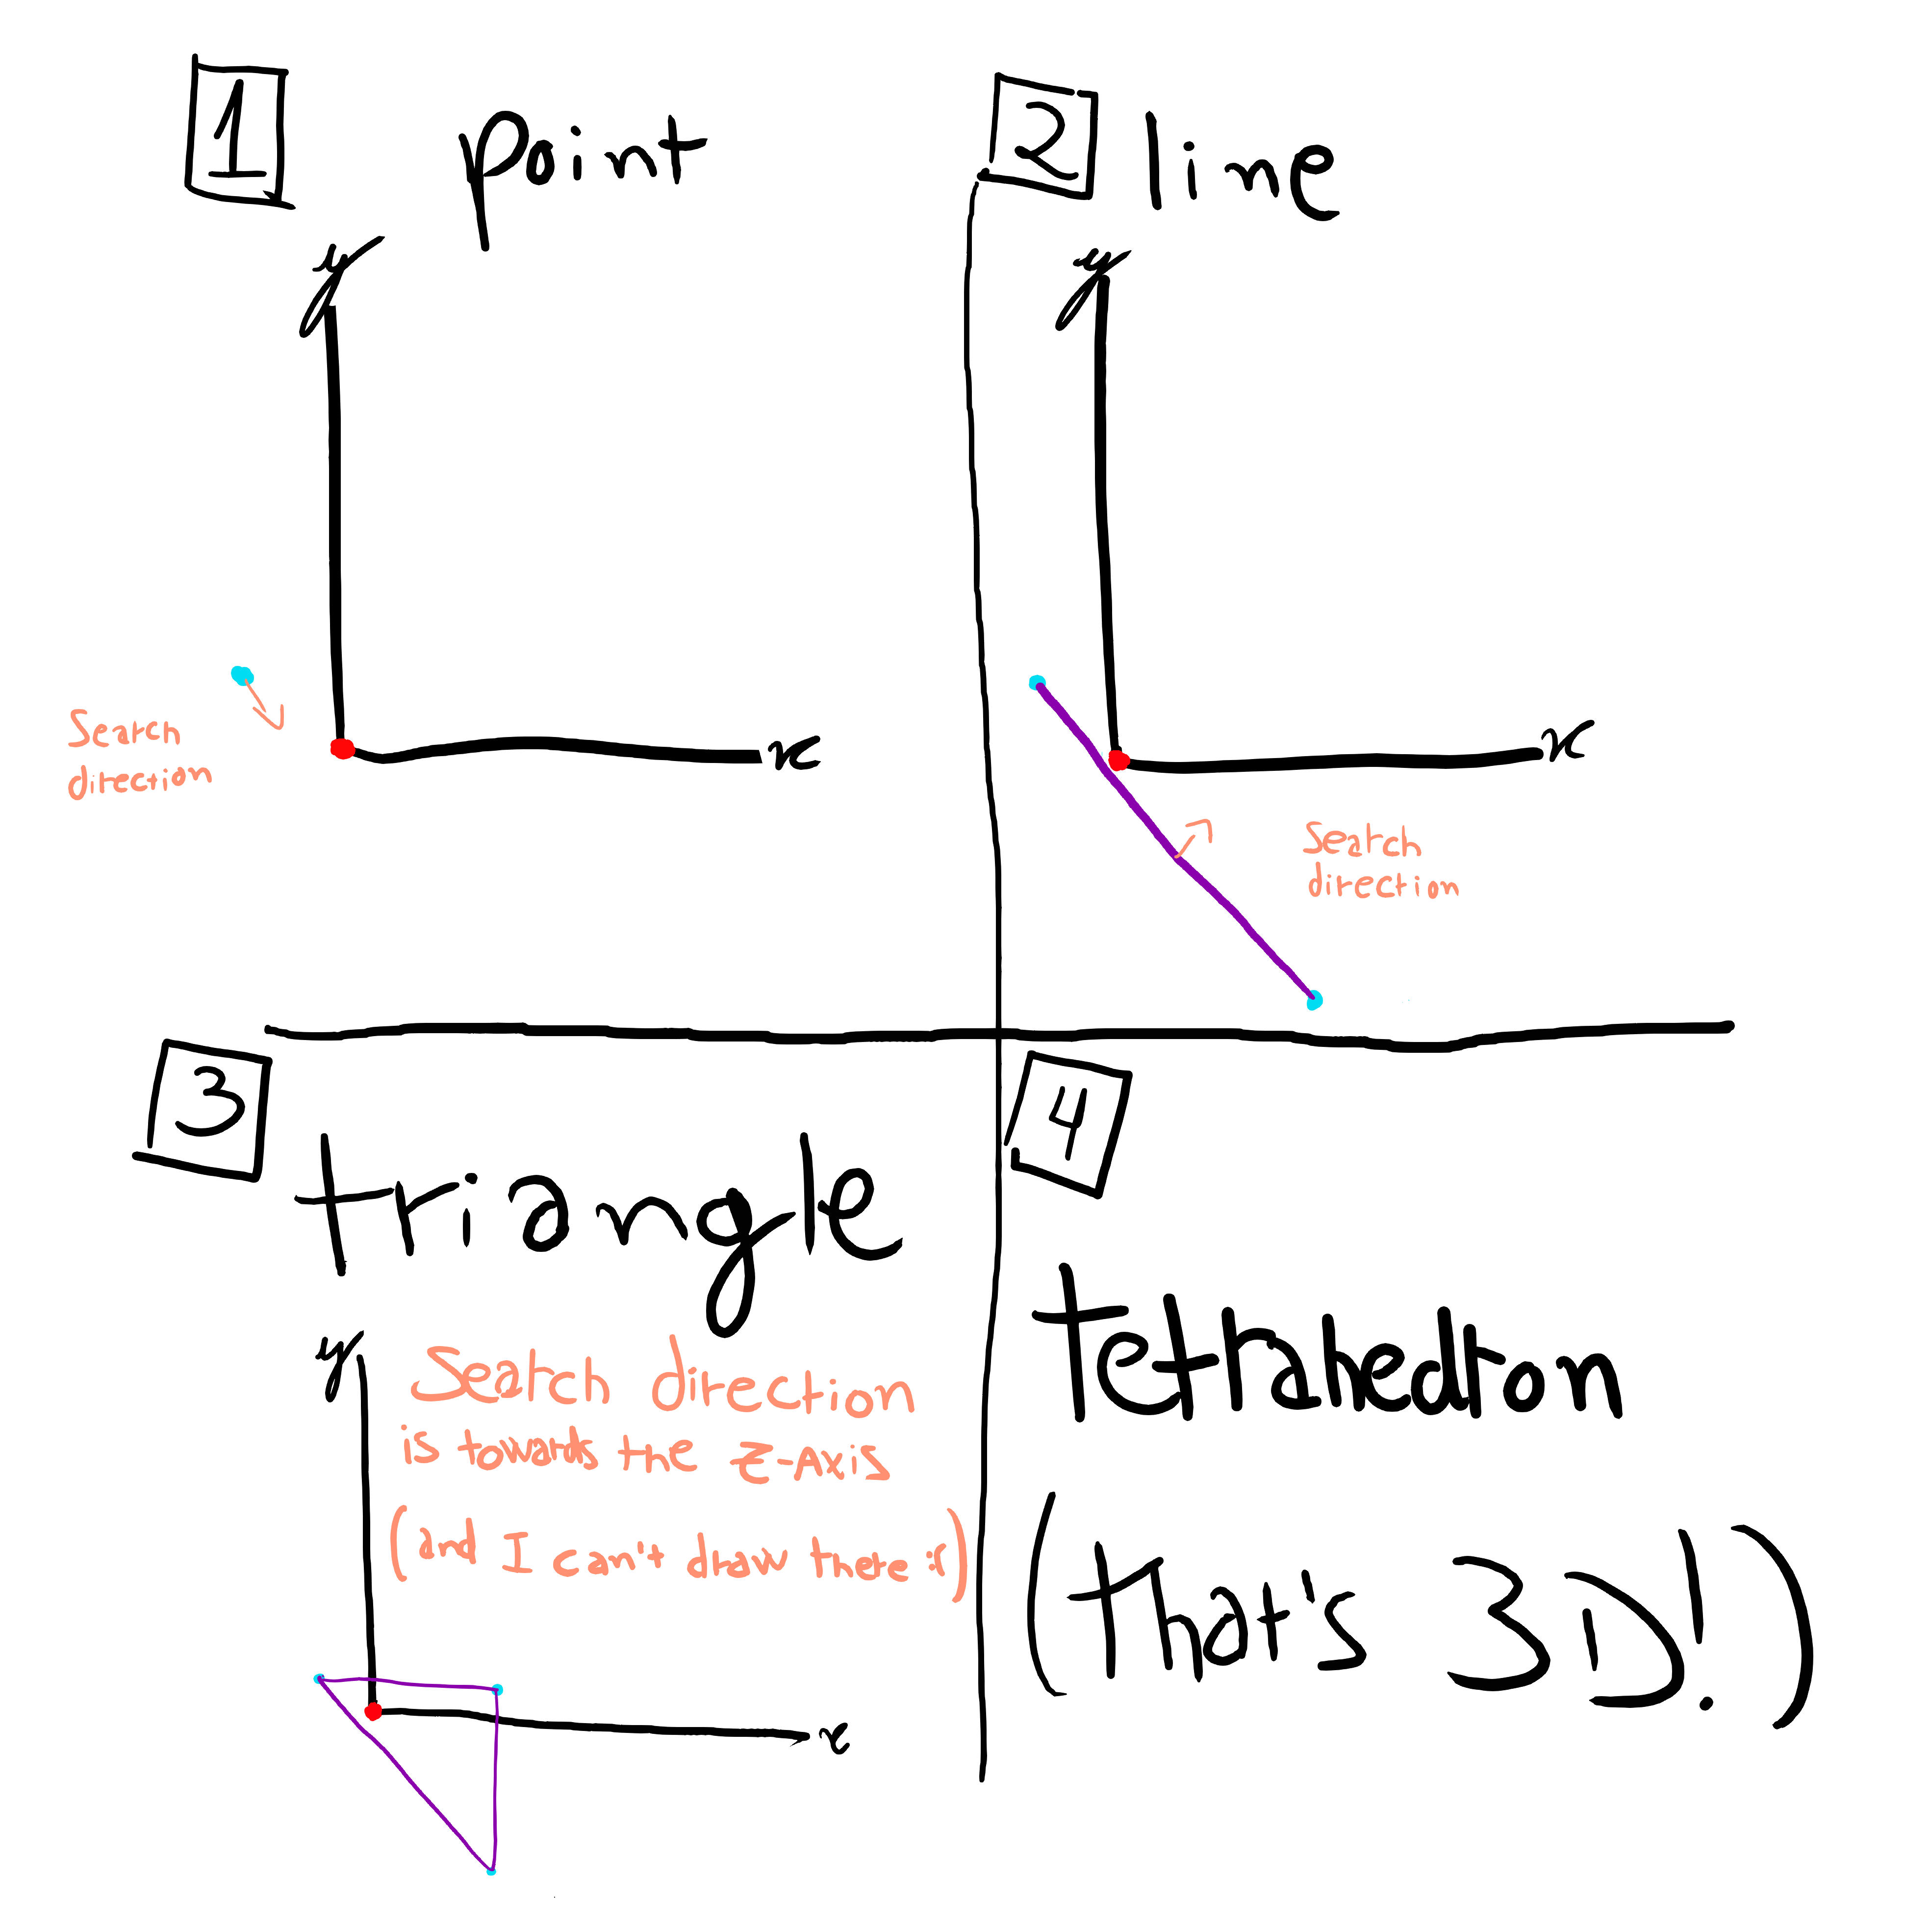 1
Point
y
x
Search
direction
2
line
y
x
Search
direction
3
triangle
y
Search direction
is towards the z-axis
(and I can't draw there :()
x
4
tetrahedron
(that's 3D!)